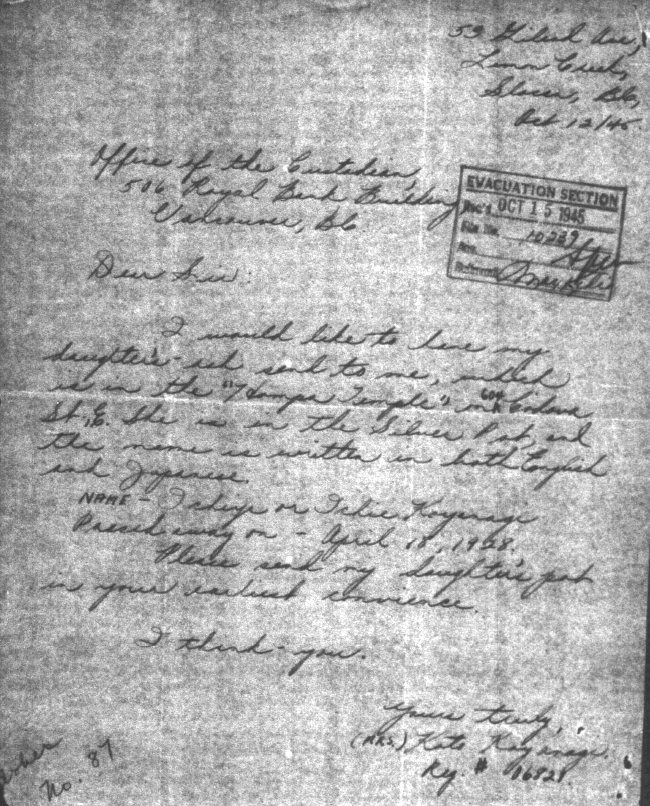 53 Gilead Ave,
Lemon Creek,
Slocan, B.C,
Oct 12/45.
Office of the Custodian,
506 Royal Bank Building
Vancouver, B.C.
EVACUATION SECTION
Rec'd OCT 15 1945
File No. 10289
Ans.
Referred
Dear Sir:
I would like to have my
daughter's ash send to me, which
is in the "Hompa Temple" on 604 Cordova
St., E. She is in the Silver Pot, and
the name is written in both English
and Japanese.
NAME - Ishiye or Ishie Koyanagi
Passed away on - April 18, 1928.
Please send my daughter's pot
in your earliest convience.
I thank-you.
Yours truly,
(MRS.) Kato Koyanagi.
Reg. # 06828
No. 87